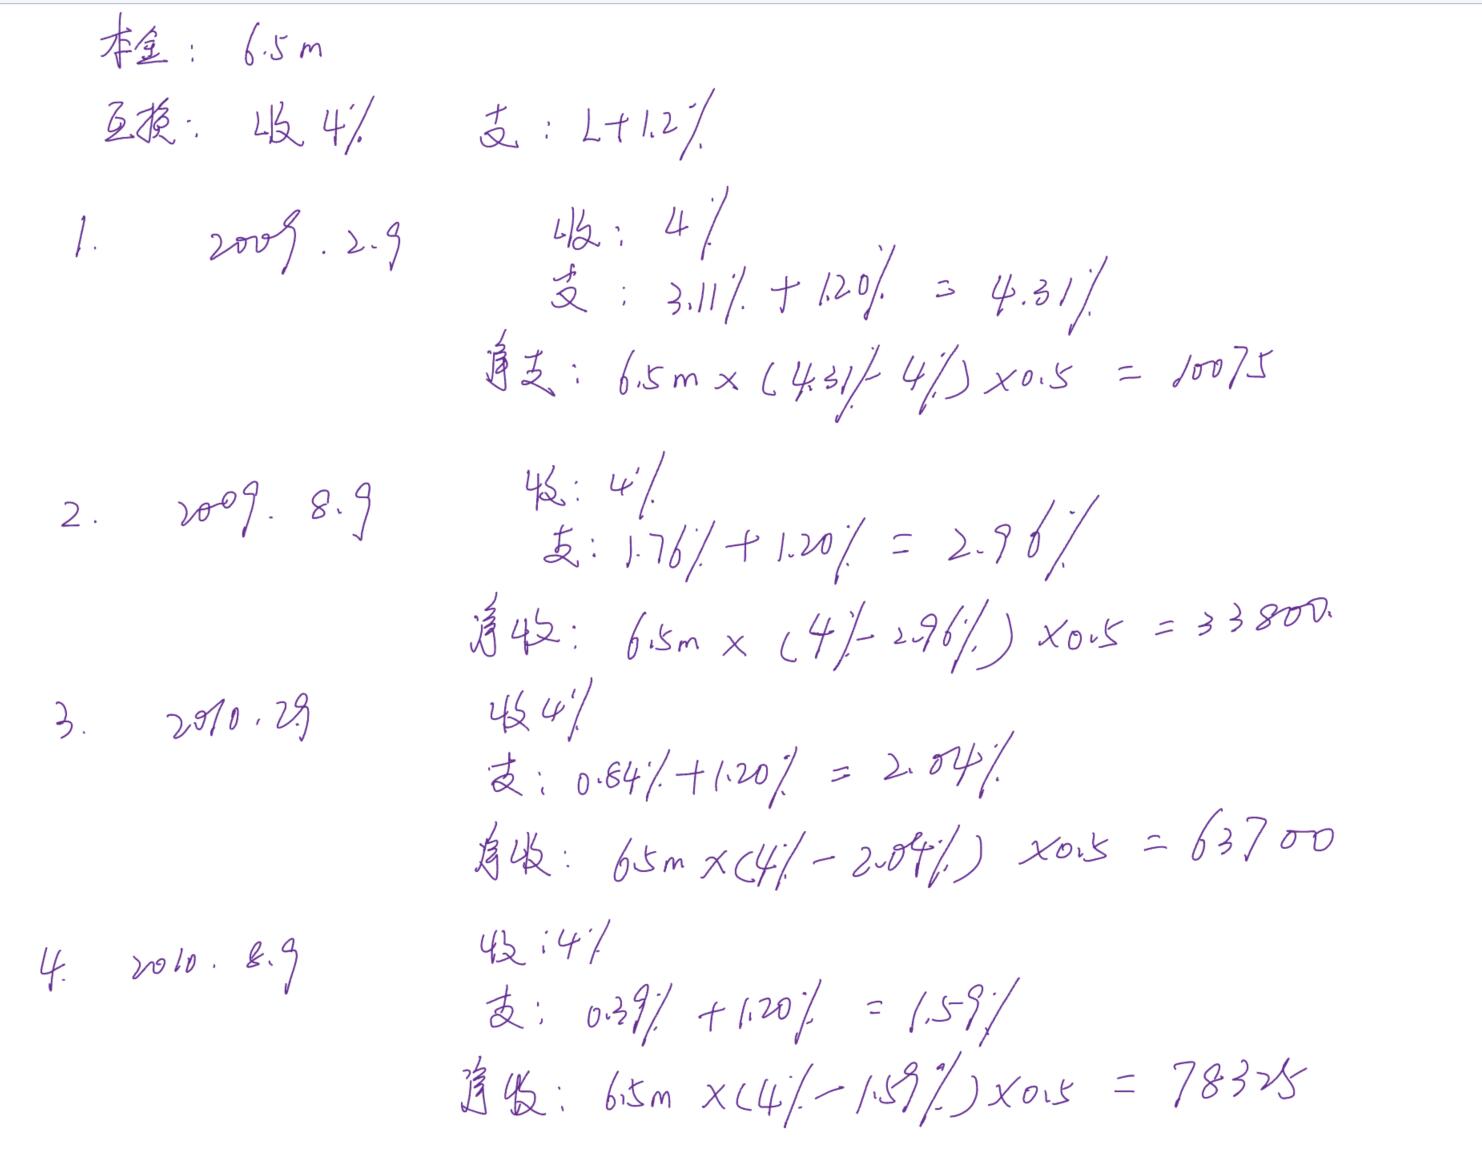 本金: 6.5m
互换: 收4% 支: L+1.2%
1. 2009.2.9 收: 4%
支: 3.11% + 1.20% = 4.31%
净支: 6.5m × (4.31% - 4%) ×0.5 = 10075
2. 2009.8.9 收: 4%
支: 1.76% + 1.20% = 2.96%
净收: 6.5m × (4% - 2.96%) ×0.5 = 33800.
3. 2010.2.9 收4%
支: 0.84% + 1.20% = 2.04%
净收: 6.5m ×(4% - 2.04%) ×0.5 = 63700
4. 2010.8.9 收: 4%
支: 0.39% + 1.20% = 1.59%
净收: 6.5m ×(4% - 1.59%) ×0.5 = 78325